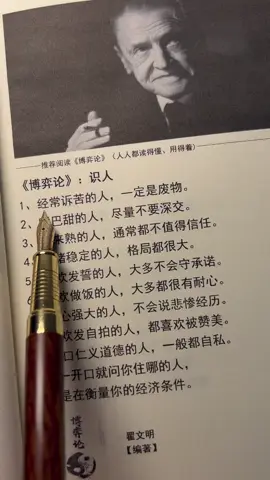 推荐阅读《博弈论》（人人都读得懂、用得着）
《博弈论》：识人
1、经常诉苦的人，一定是废物。
2、 巴甜的人，尽量不要深交。
来熟的人，通常都不值得信任。
绪稳定的人，格局都很大。
欢发誓的人，大多不会守承诺。
欢做饭的人，大多都很有耐心。
心强大的人，不会说悲惨经历。
欢发自拍的人，都喜欢被赞美。
口仁义道德的人，一般都自私。
一开口就问你住哪的人，
是在衡量你的经济条件。
博弈论
翟文明
【编著】